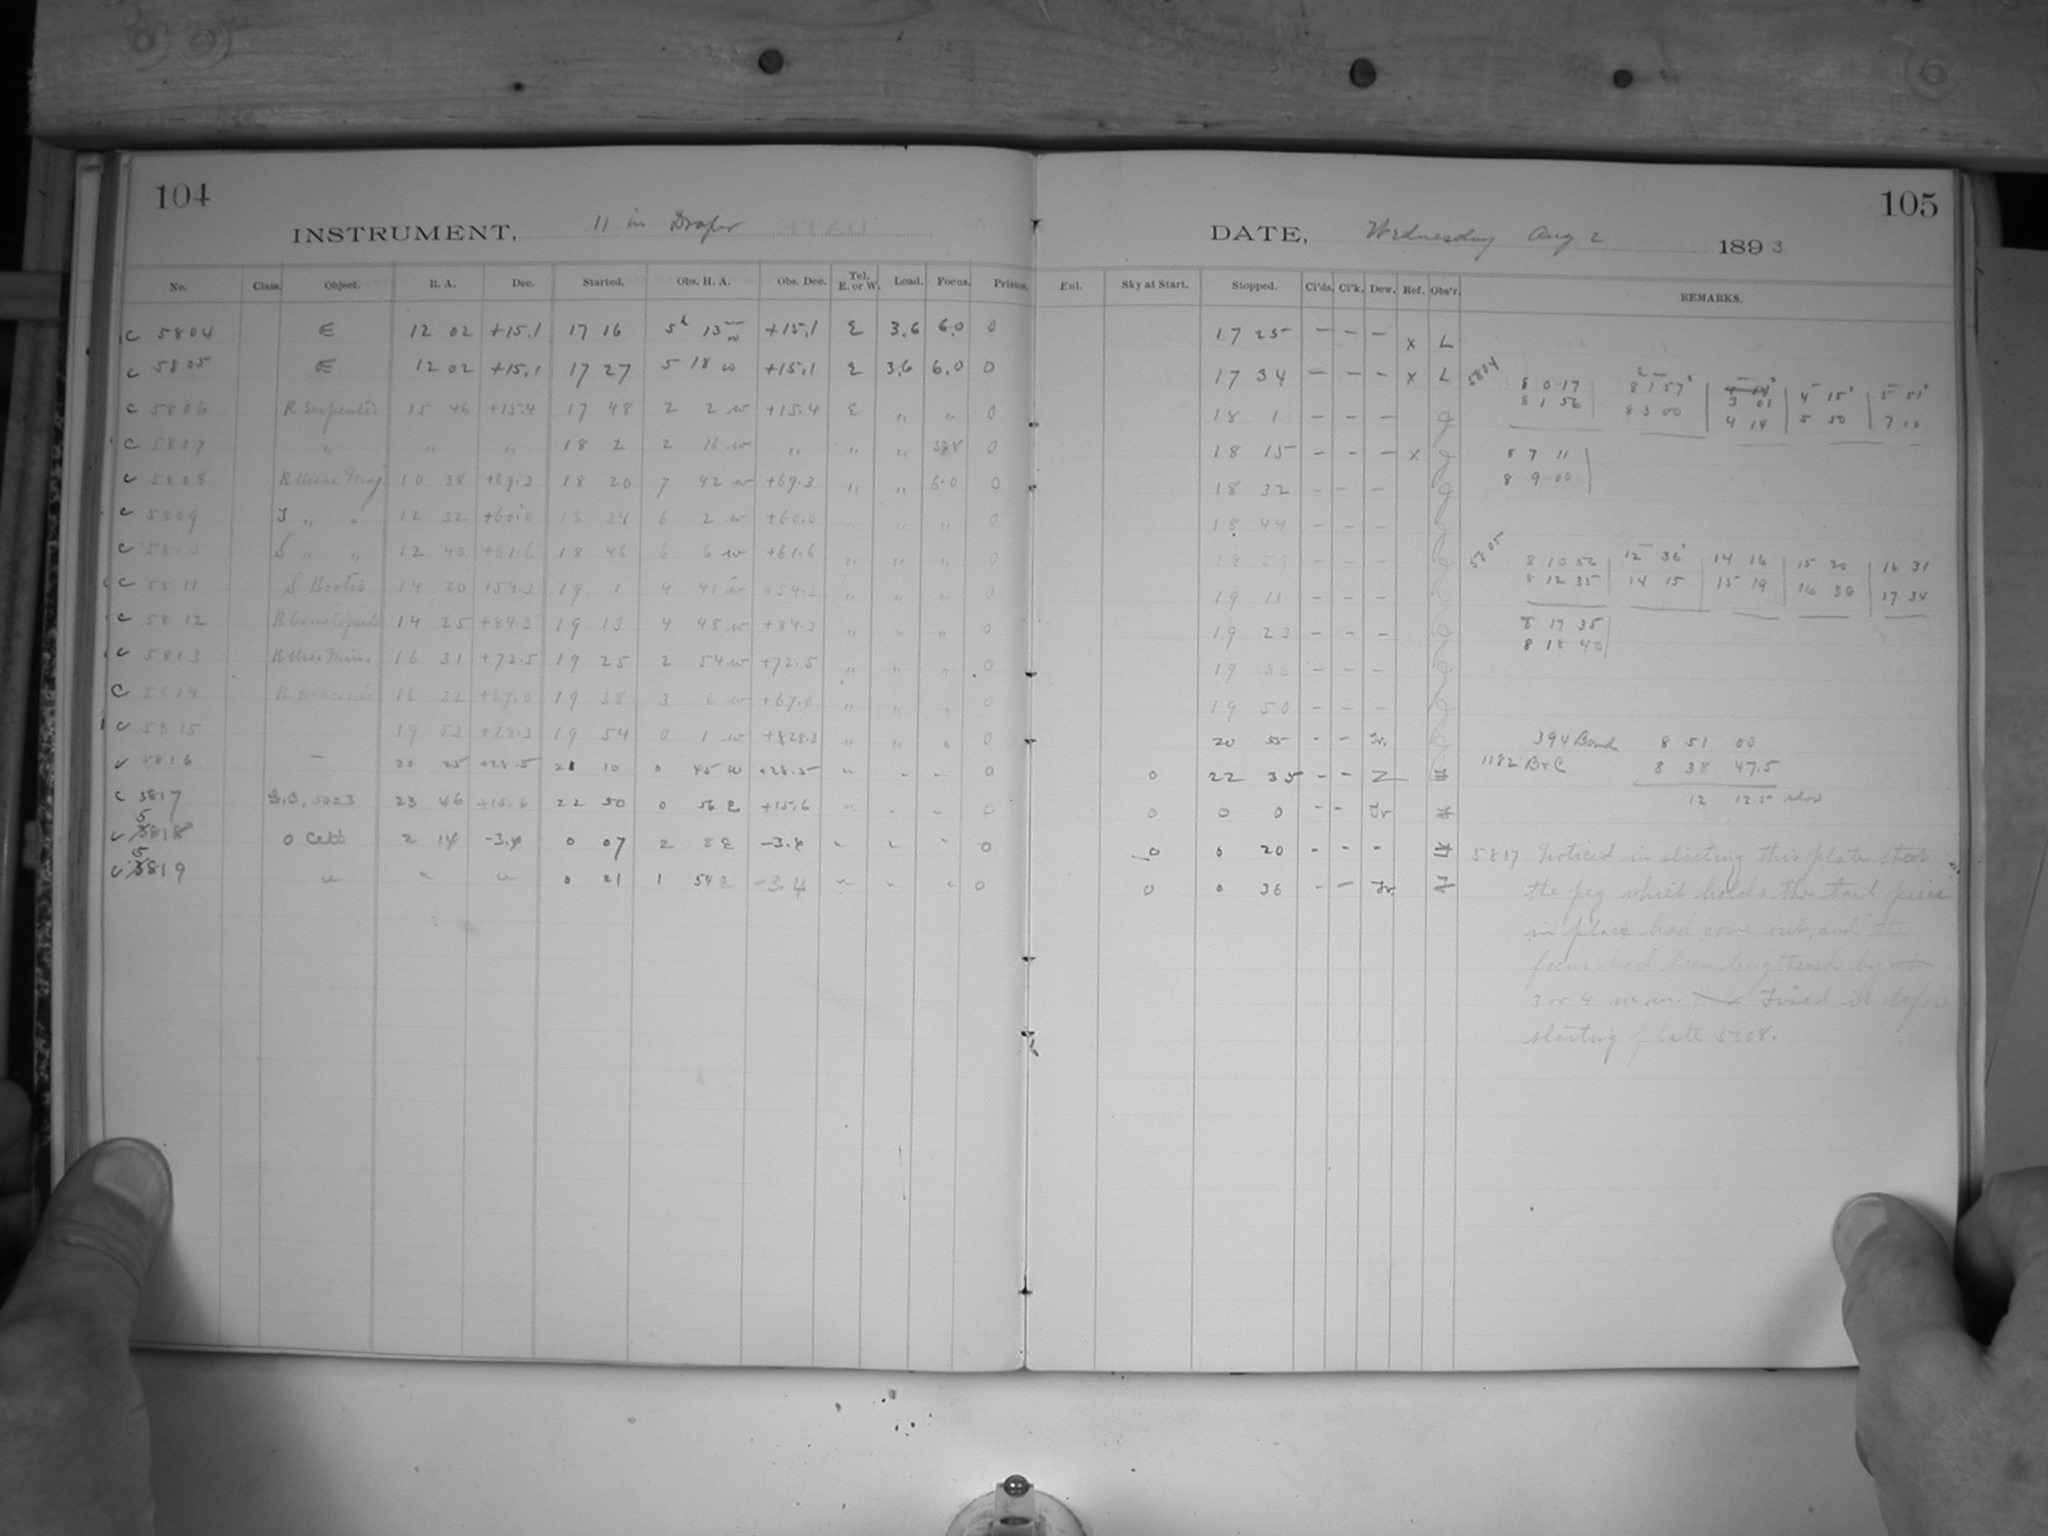 104
INSTRUMENT, 11 in Draper
No. Class. Object. R. A. Dec. Started. Obs. H. A. Obs. Dec. Tel. E. or W. Load. Focus. Prisms.
C 5804 E 12 02 +15.1 17 16 5h 13m w +15.1 E 3.6 6.0 0
C 5805 E 12 02 +15.1 17 27 5 18 w +15.1 E 3.6 6.0 0
C 5806 R Serpentis 15 46 +15.4 17 48 2 2 w +15.4 E " " 0
C 5807 " " " 18 2 2 16 w " " " 0
C 5808 R Ursae Maj. 10 38 +69.3 18 20 7 42 w +69.3 " " 6.0 0
C 5809 T " " 12 32 +60.0 18 34 6 2 w +60.0 " " " 0
C 5810 S " " 12 40 +61.6 18 46 6 6 w +61.6 " " " 0
C 5811 S Bootis 14 20 +54.3 19 1 4 41 w +54.3 " " "
C 5812 R Camelopardi 14 25 +84.3 19 13 4 48 w +84.3 " " " 0
C 5813 R Urs. Min. 16 31 +72.5 19 25 2 54 w +72.5 " " " 0
C 5814 R Draconis 16 32 +67.0 19 38 3 6 w +67.0 " " " 0
C 5815 19 53 +28.3 19 54 0 1 w +28.3 " " " 0
C 5816 — 20 25 +28.5 21 10 0 45 w +28.5 " " " 0
C 5817 23 46 +15.6 22 50 0 56 E +15.6 " " " 0
C 5818 o Ceti 2 14 -3.4 0 07 2 8 E -3.4 " " " 0
C 5819 " " " 0 21 1 54 E -3.4 " " " 0
105
DATE, Wednesday Aug 2 1893
Enl. Sky at Start. Stopped. Cl'ds. Cl'k. Dew. Ref. Obs'r. REMARKS.
17 25 - - - x L
17 34 - - - x L
18 1 - - - J
18 15 - - - x J
18 32 - - - J
18 44 - - - J
18 59 - - - J
19 11 - - - J
19 23 - - - J
19 36 - - - J
19 50 - - - J
20 55 - - Tr. J
0 22 35 - -
0 0 0 - - Tr
0 0 20 - - -
0 0 36 - - Tr.
5804
8 0 17 8 1 57 3 01 4 15 5 51
8 1 56 8 3 00 4 14 5 50 7 10
8 7 11
8 9 00
5805
8 10 56 12 36 14 16 15 20 16 31
8 12 35 14 15 15 19 16 30 17 34
8 17 35
8 18 40
394 Bond 8 51 00
1182 B+C 8 38 47.5
12 12.5 slow
5807 Noticed in starting this plate that
the peg which holds the tail piece
in place had come out, and the
focus had been lengthened by
3 or 4 m.m. Fixed it before
starting plate 5808.